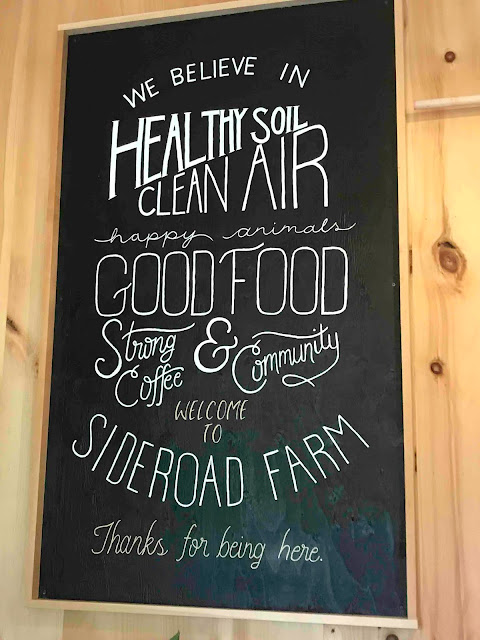 WE BELIEVE IN
HEALTHY SOIL
CLEAN AIR
happy animals
GOOD FOOD
Strong Coffee & Community
WELCOME
TO
SIDEROAD FARM
Thanks for being here.